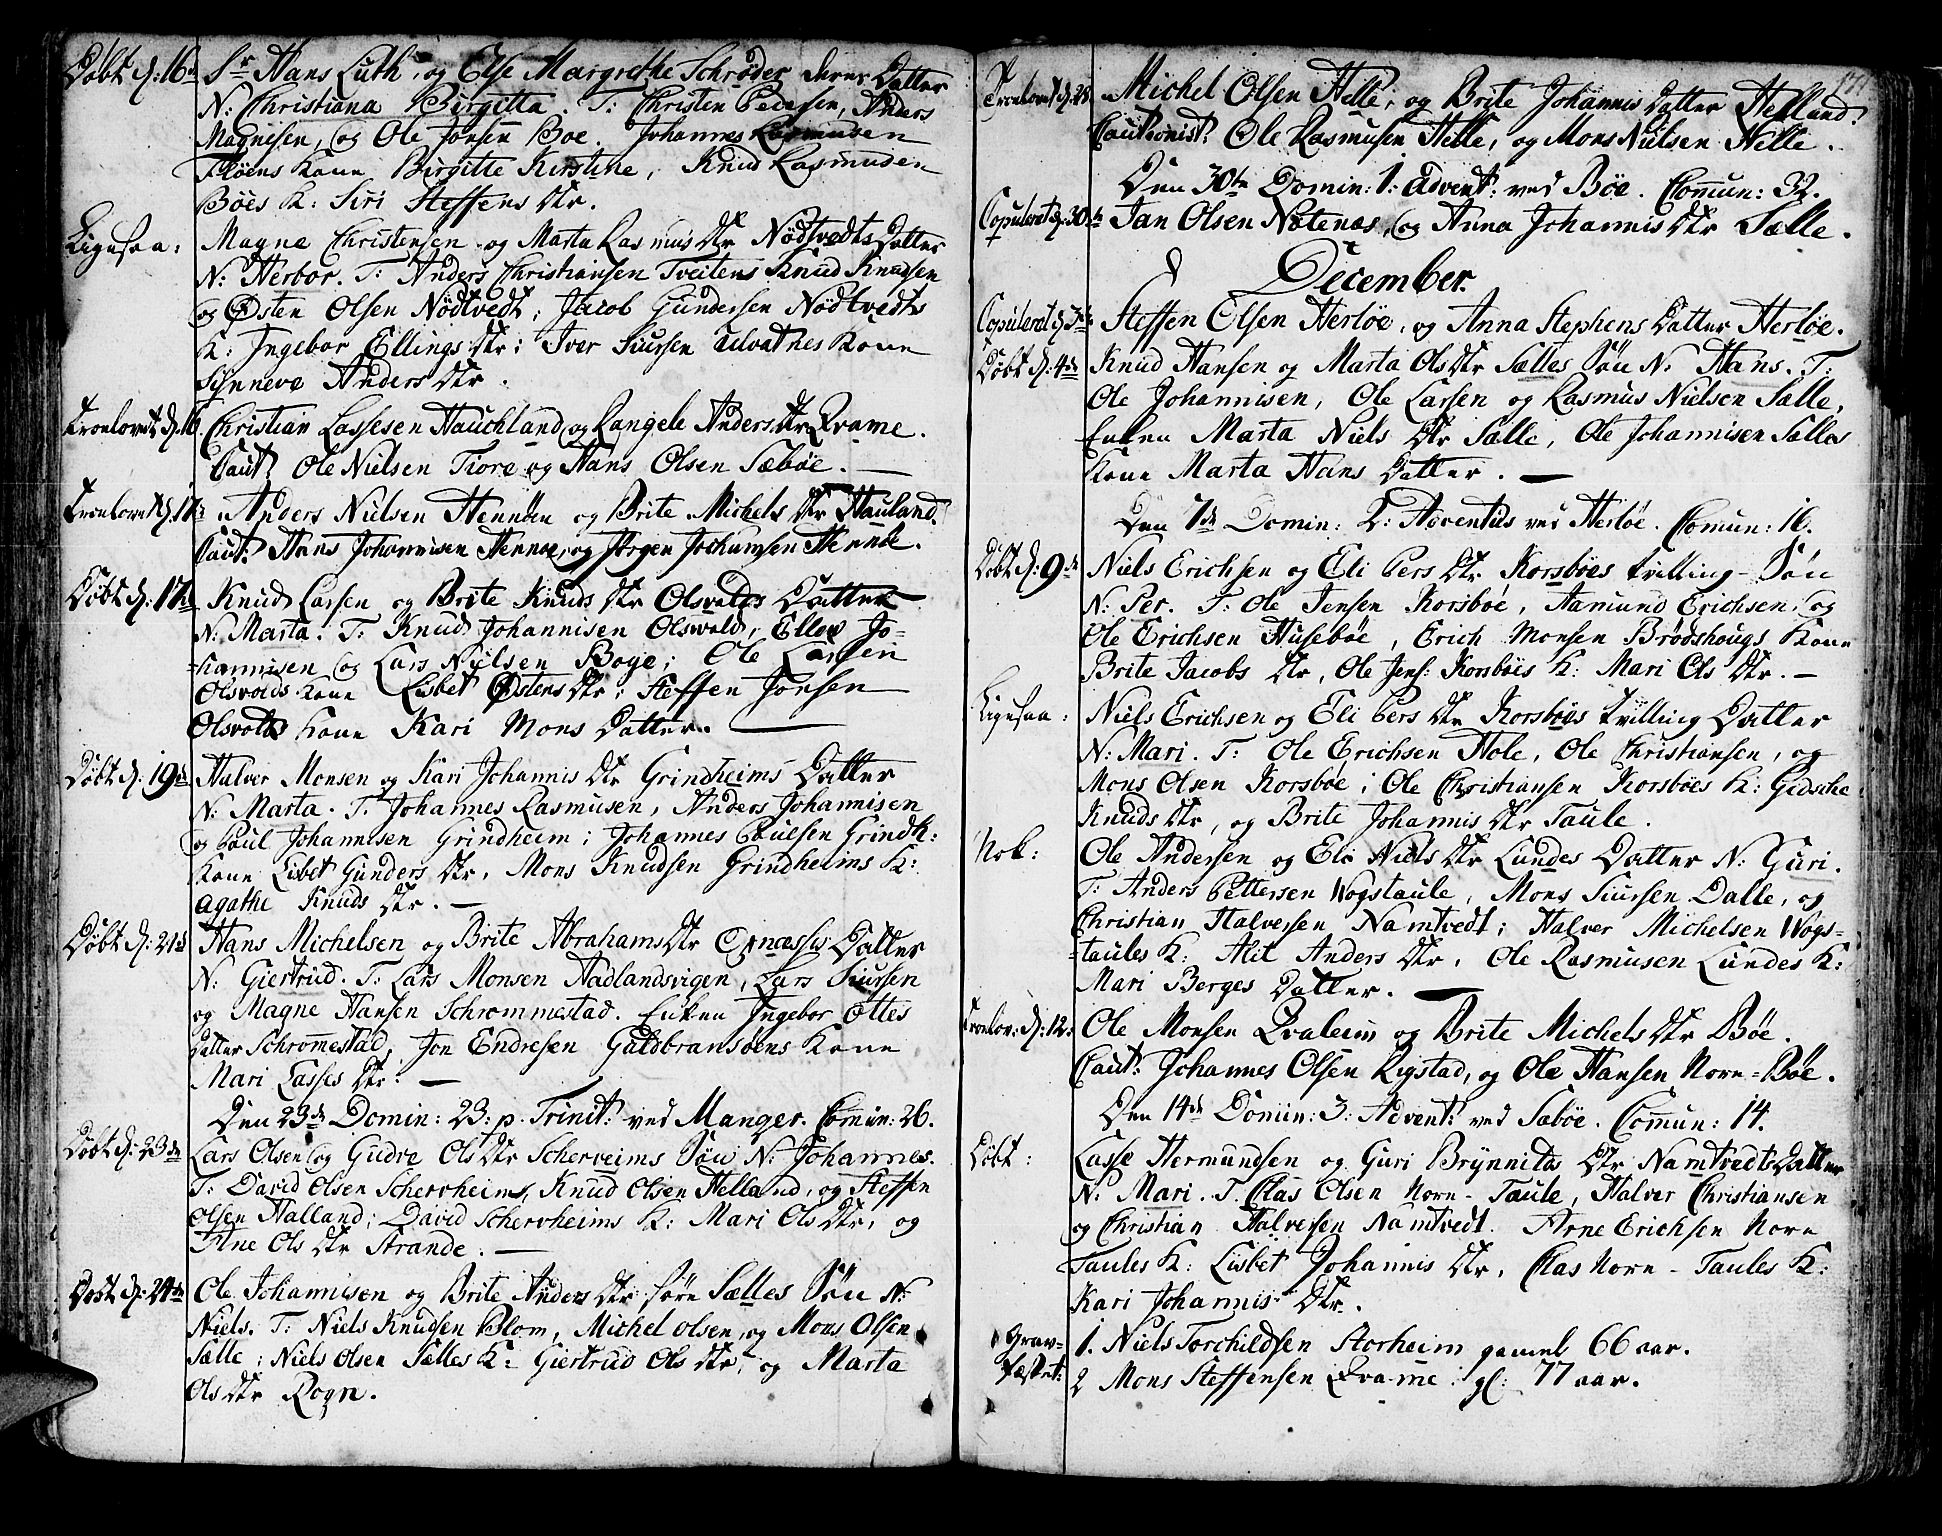 Døbt d: 16de Sr Hans Luth, og Else Margrethe Schrøder deres Datter
N: Christiana Birgitta. T: Christen Pedersen, Anders
Magnesen, og Ole Jonsen Boe. Johannes Rasmusen
Fløens Kone Birgitte Kirstine, Knud Rasmusen
Böes K: Siri Steffens Dtr.
Ligesaa: Magne Christensen og Marta Rasmus Dtr Nödtvedts Datter
N: Herbor. T: Anders Christiansen Tveiten Knud Knudsen
og Østen Olsen Nödtvedt; Jacob Gundersen Nödtvedts
K: Ingebor Ellings Dtr; Iver Siursen Kone
Synneve Anders Dtr.
Troelovet d. 16 Christian Lassesen Hauchland og Rangele Anders Dtr Qvame.
Caut: Ole Nielsen Tiore og Hans Olsen Sæbøe.
Troelovet d. 17 Anders Nielsen Hennöen og Brite Michels Dtr Hauland.
Caut: Hans Johannisen Hennöe, og Jörgen Jochumsen Hennöe.
Døbt d: 17de Knud Larsen og Brite Knuds Dtr Olsvolds Datter
N: Marta. T: Knud Johannisen Olsvold, Ellev Jo-
hannisen og Lars Nielsen Boge; Ole Larsen
Olsvolds Kone Lisbet Østens Dtr; Steffen Jonsen
Olsvolds Kone Kari Mons Datter.
Døbt d: 19de Halver Monsen og Kari Johannis Dtr Grindheims Datter
N: Marta. T: Johannes Rasmusen, Anders Johannisen
og Poul Johannisen Grindheim; Johannes Poulsen Grindh:
Kone Lisbet Gunders Dtr, Mons Knudsen Grindheims K:
Agathe Knuds Dtr.
Døbt d: 21de Hans Michelsen og Brite Abrahams Dtr Datter
N: Giertrud. T: Lars Monsen Hadlandsvigen, Lars Siursen
og Magne Hansen Schrommestad. Enken Ingebor Ottes
Datter Schromestad, Jon Endresen Guldbransöens Kone
Mari Lasses Dtr.
Den 23de Domin: 23: p. Trinit: ved Manger. Comun: 26.
Døbt d: 23de Lars Olsen og Gudve Ols Dtr Scherveims Søn N: Johannes.
T: David Olsen Schervheims, Knud Olsen Helland, og Steffen
Olsen Halland; David Schervheims K: Mari Ols Dtr, og
Ane Ols Dtr Strande.
Døbt d: 24de Ole Johannisen og Brite Anders Dtr Søre Sælles Søn N:
Niels. T: Niels Knudsen Blom, Michel Olsen, og Mons Olsen
Sælle; Niels Olsen Sælles K: Giertrud Ols Dtr, og Marta
Ols Dtr Rogn.
171
Troelovet d. 28 Michel Olsen Helle, og Brite Johannis Datter Helland.
Cautionist: Ole Rasmusen Helle, og Mons Nielsen Helle.
Den 30te Domin: 1. Advent: ved Bøe. Comun: 32.
Copuleret d. 30te Jan Olsen Notenæs, og Anna Johannis Dtr Sælle.
December.
Copuleret d 3de Steffen Olsen Herløe, og Anna Stephens Datter Herløe.
Døbt d: 4de Knud Hansen og Marta Ols Dtr Sælles Søn N: Hans. T:
Ole Johannisen, Ole Larsen og Rasmus Nielsen Sælle,
Enken Marta Niels Dtr Sælle, Ole Johannisen Sælles
Kone Marta Hans Datter.
Den 7de Domin: 2: Adventus ved Herløe. Comun: 16.
Døbt d: 9de Niels Erichsen og Eli Pers Dtr Korsböes tvilling-Søn
N: Per. T: Ole Jensen Korsböe, Aamund Erichsen, og
Ole Erichsen Husebøe, Erich Monsen Brødshougs Kone
Brite Jacobs Dtr, Ole Jens: Korsböes K: Mari Ols Dtr.
Ligesaa: Niels Erichsen og Eli Pers Dtr Korsböes tvilling Datter
N: Mari. T: Ole Erichsen Hole, Ole Christiansen, og
Mons Olsen Korsböe; Ole Christiansen Korsböes K: Gidsche
Knuds Dtr, og Brite Johannis Dtr Taule.
Nok: Ole Andersen og Eli Niels Dtr Lundes Datter N: Guri.
T: Anders Pettersen Wogstaule, Mons Siursen Dalle, og
Christian Halversen Namtvedt; Halver Michelsen Wogs-
taules K: Alit Anders Dtr, Ole Rasmusen Lundes K:
Mari Berges Datter.
Troelov: d: 12: Ole Monsen Qvaleim og Brite Michels Dtr Bøe.
Caut: Johannes Olsen Rigstad, og Ole Hansen Norn-Bøe.
Den 14de Domin: 3: Advent: ved Sæbøe. Comun: 14.
Døbt: Lasse Hermundsen og Guri Brynnilds Dtr Namtvedts Datter
N: Mari. T. Clas Olsen Norn-Taule, Halver Christiansen
og Christian Halversen Namtvedt. Arne Erichsen Norn
Taules K: Lisbet Johannis Dtr, Clas Norn-Taules K:
Kari Johannis Dtr.
Grav- 1. Niels Torchildsen Storheim gamel 66 aar.
fæstet: 2 Mons Steffensen Qvame gl: 77 aar.